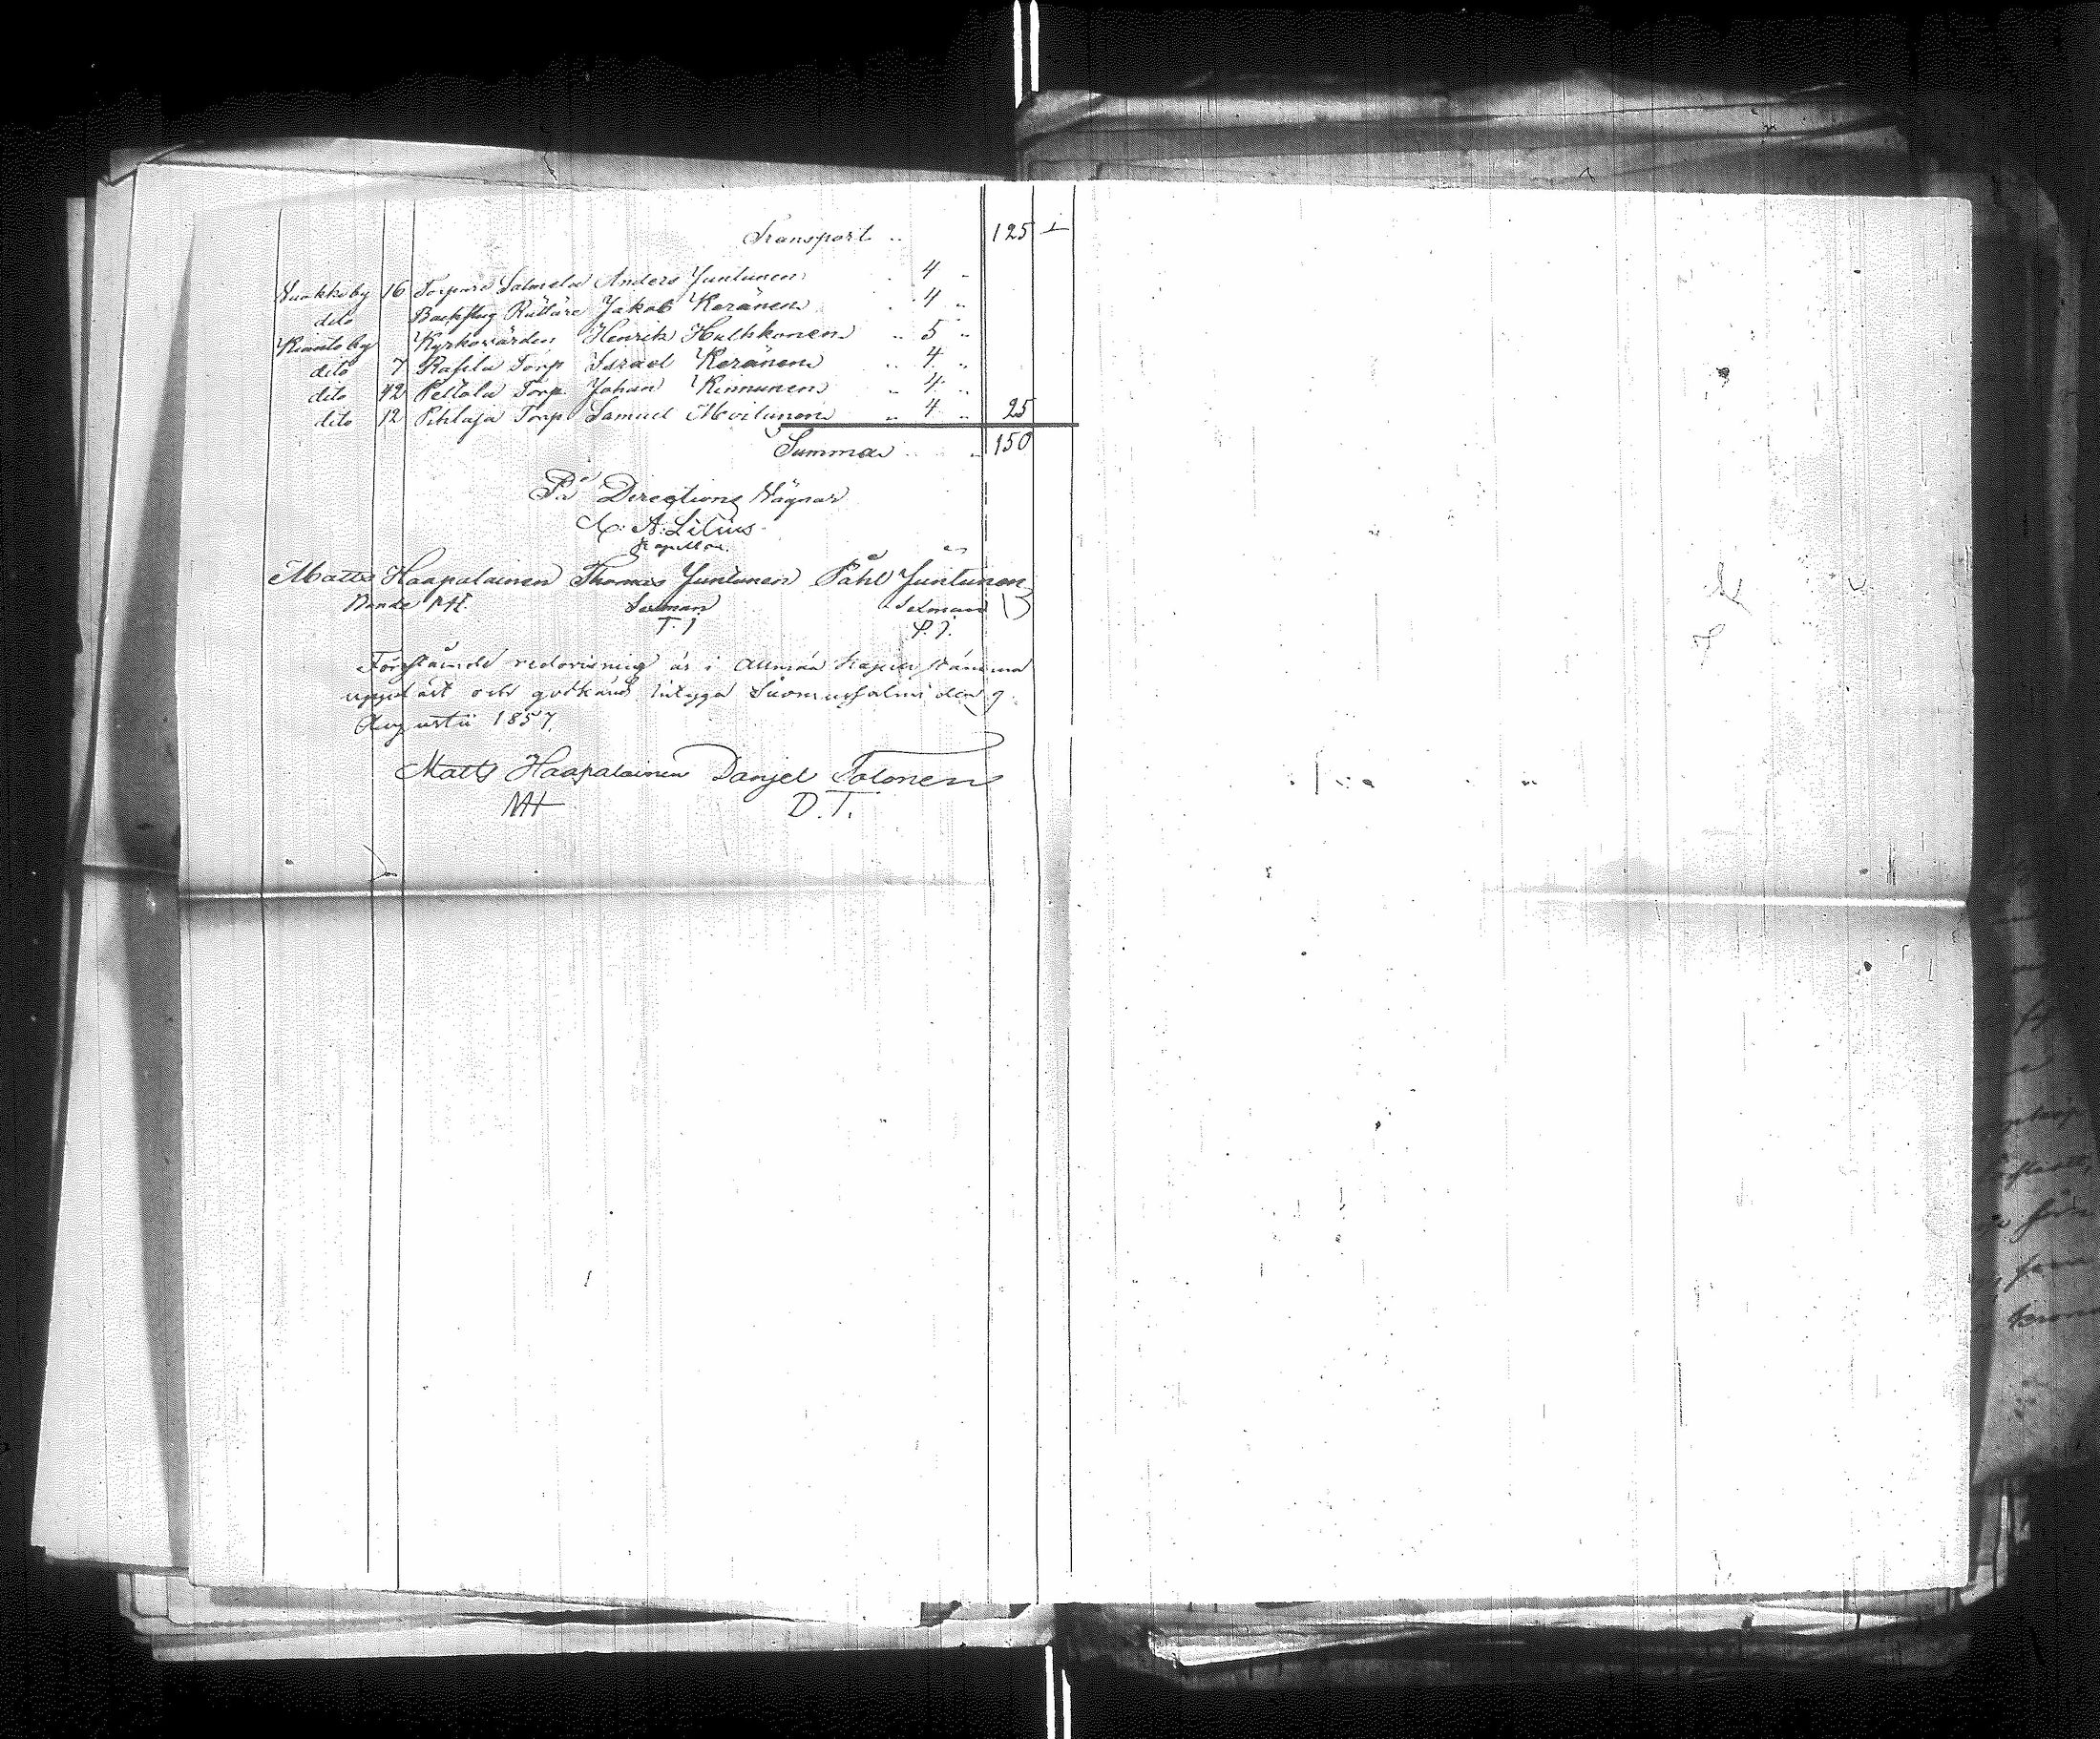 Transport .. 125 -
Ruokkoby 16 Torpare Salmela Anders Juntunen . 4 -
dito Backstug Rättäre Jakob Keränen . 4 ..
Kianto by Kyrkovärden Henrik Hulkkonen .. 5 ..
dito 7 Rasila Torp Israel Keränen .. 4 ..
dito 42 Peltola Torp. Johan Kinnunen .. 4 ..
dito 12 Pihlaja Torp Samuel Moilanen .. 4 .. 25
Summa .. 150
På Directions Vägnar
A. Lilius
Kapellan.
Matts Haapalainen Thomas Juntunen Påhl Juntunen
Bonde MH. Sexman Sexman
T. J P. J.
Förestående redovisning är i allmän stämma
uppläst och godkänd intyga Suomussalmi den 9
Augustii 1857.
Matts Haapalainen Danjel Tolonen
MH D. T.